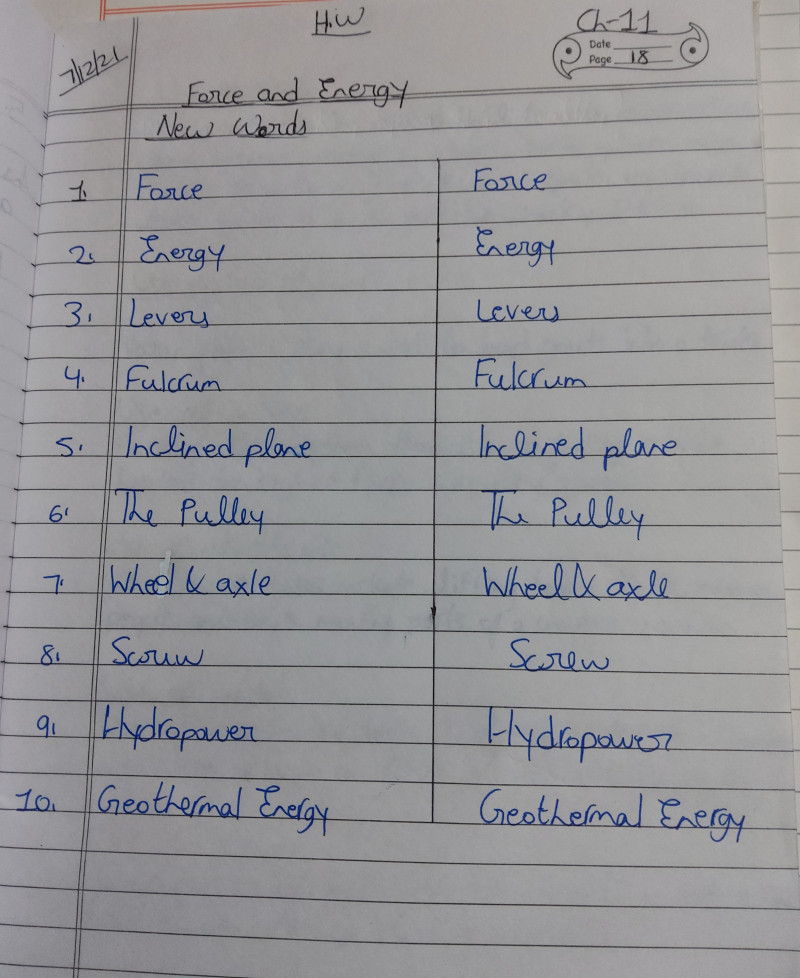 H.W
Ch-11
Date
Page 18
7/12/21
Force and Energy
New Words
1. Force Force
2. Energy Energy
3. Levers Levers
4. Fulcrum Fulcrum
5. Inclined plane Inclined plane
6. The Pulley The Pulley
7. Wheel & axle Wheel & axle
8. Screw Screw
9. Hydropower Hydropower
10. Geothermal Energy Geothermal Energy